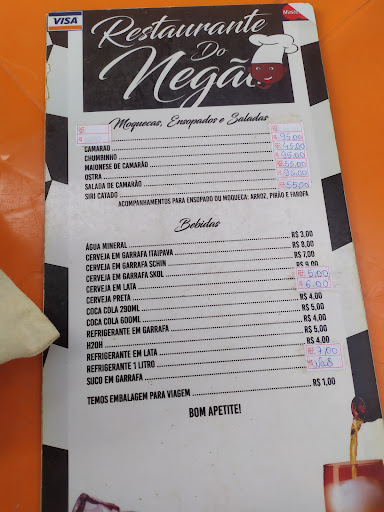 VISA
Restaurante
Do
Negão
Moquecas, Ensopados e Saladas
CAMARÃO 95,00
CHUMBINHO 45,00
MAIONESE DE CAMARÃO
OSTRA 55,00
SALADA DE CAMARÃO
SIRI CATADO 55,00
ACOMPANHAMENTOS PARA ENSOPADO OU MOQUECA: ARROZ, PIRÃO E FAROFA
Bebidas
ÁGUA MINERAL R$ 3,00
CERVEJA EM GARRAFA ITAIPAVA R$ 8,00
CERVEJA EM GARRAFA SCHIN R$ 7,00
CERVEJA EM GARRAFA SKOL R$ 9,00
CERVEJA EM LATA R$ 5,00
CERVEJA PRETA R$ 6,00
COCA COLA 290ML R$ 4,00
COCA COLA 600ML R$ 5,00
REFRIGERANTE EM GARRAFA R$ 4,00
H2OH R$ 5,00
REFRIGERANTE EM LATA R$ 4,00
REFRIGERANTE 1 LITRO R$ 7,00
SUCO EM GARRAFA
TEMOS EMBALAGEM PARA VIAGEM R$ 1,00
BOM APETITE!